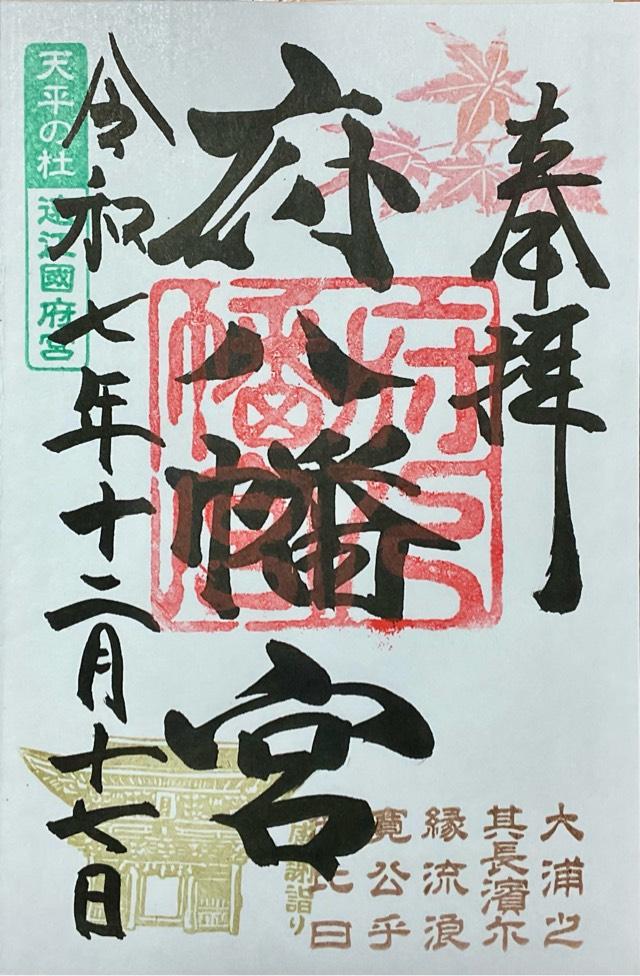 奉拝
府八幡宮
令和七年十二月十七日
天平の杜
遠江國府宮
府八
幡宮
大浦之
其長濱尓
縁流浪
寛公乎
比日
謝詣り